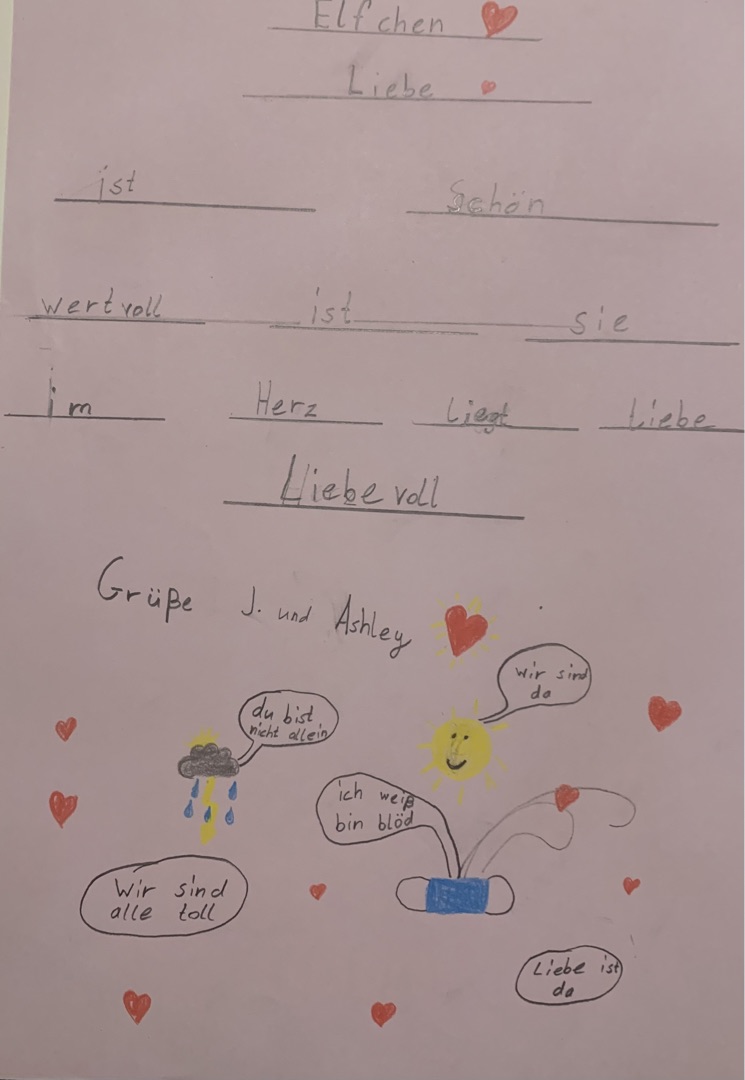 Elfchen
Liebe
ist Schön
wertvoll ist sie
im Herz liegt Liebe
Liebevoll
Grüße J. und Ashley
wir sind
da
du bist
nicht allein
ich weiß
bin blöd
Wir sind
alle toll
Liebe ist
da